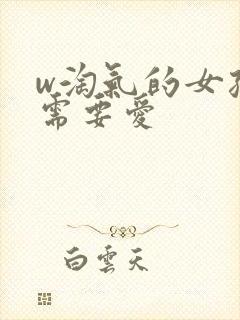 w淘氣的女孩
需要愛
白雲天